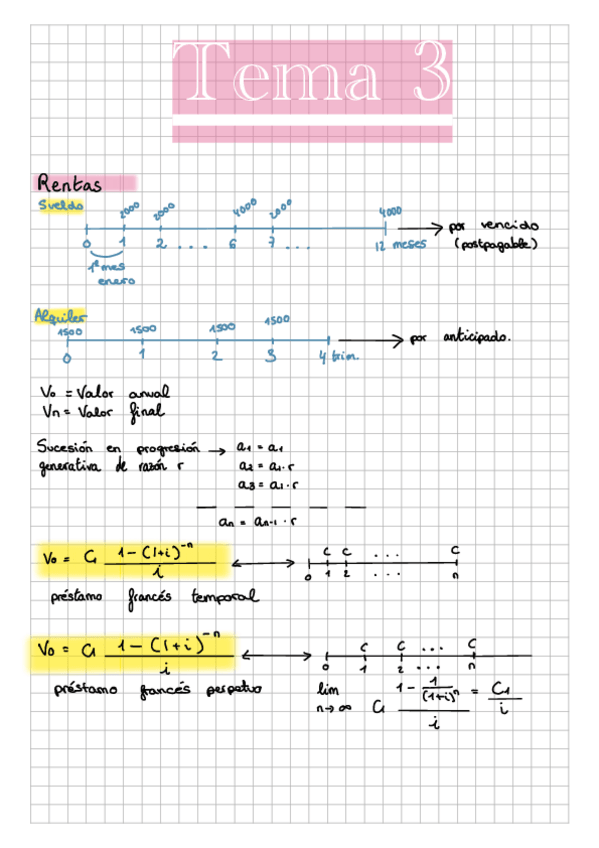 Tema 3
Rentas
Sueldo
2000 2000 4000 2000 4000
0 1 2 ... 6 7 ... 12 meses
por vencido
(postpagable)
1er mes
enero
Alquiler
1500 1500 1500 1500
0 1 2 3 4 trim.
por anticipado.
V0 = Valor anual
Vn = Valor final
Sucesión en progresión → a1 = a1
generativa de razón r a2 = a1·r
a3 = a1·r
an = an-1·r
V0 = C1 (1-(1+i)^-n)/i ↔ C C ... C
0 1 2 ... n
préstamo francés temporal
V0 = C1 (1-(1+i)^-n)/i ↔ C C ... C
0 1 2 ... n
préstamo francés perpetuo
lim n→∞ C1 (1 - 1/(1+i)^n)/i = C1/i